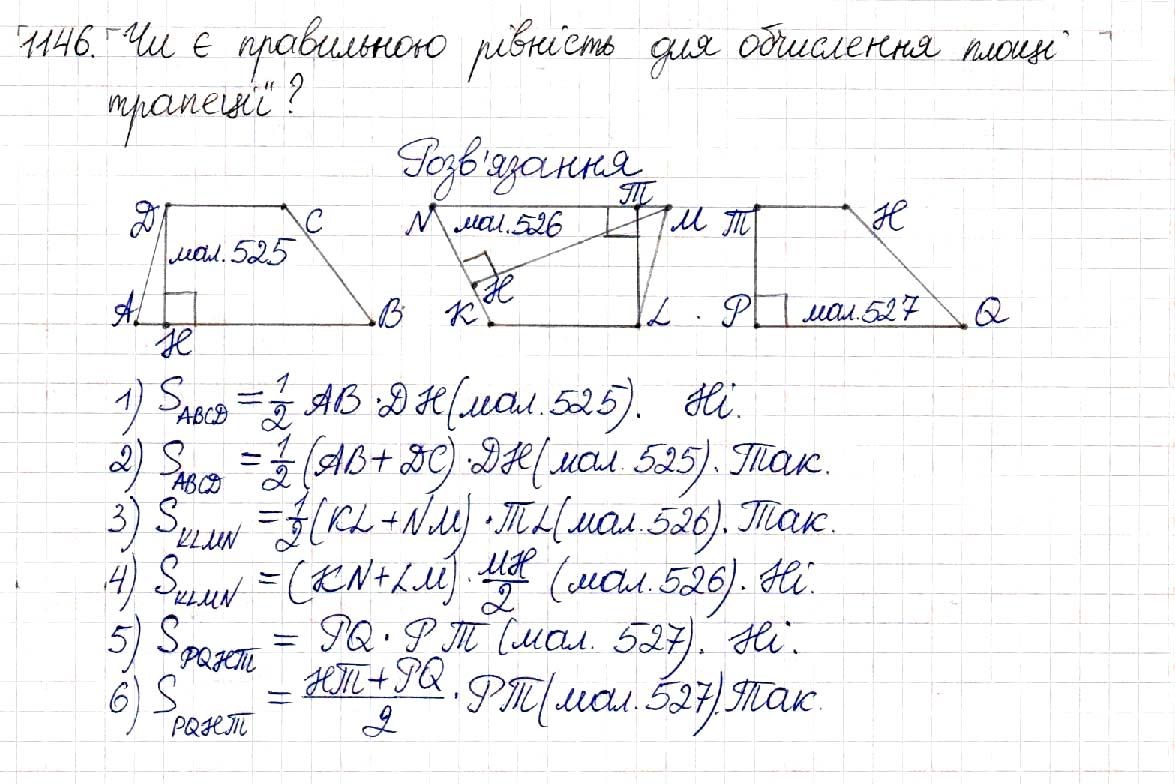 1146. Чи є правильною рівність для обчислення площі
трапеції?
Розв'язання
D C мал. 525 A H B
N T M мал. 526 H K L
T H P мал. 527 Q
1) S_ABCD = 1/2 AB · DH (мал. 525). Ні.
2) S_ABCD = 1/2 (AB + DC) · DH (мал. 525). Так.
3) S_KLMN = 1/2 (KL + NM) · TL (мал. 526). Так.
4) S_KLMN = (KN + LM) · MH/2 (мал. 526). Ні.
5) S_PQHT = PQ · PT (мал. 527). Ні.
6) S_PQHT = HT + PQ/2 · PT (мал. 527). Так.